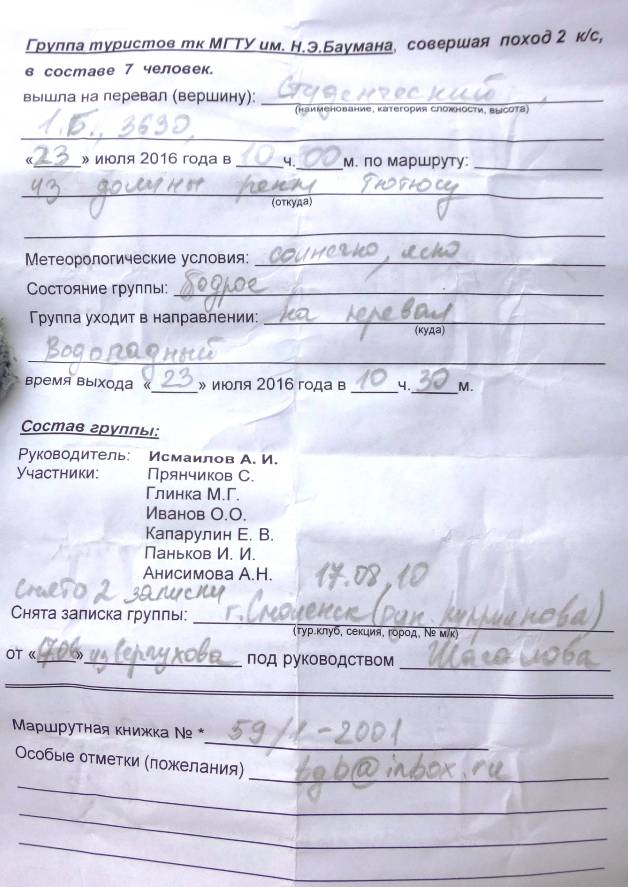 Группа туристов тк МГТУ им. Н.Э.Баумана, совершая поход 2 к/с,
в составе 7 человек.
вышла на перевал (вершину): Студенческий,
(наименование, категория сложности, высота)
1.Б., 3690,
«23» июля 2016 года в 10 ч. 00 м. по маршруту:
из долины реки Тютюсу
(откуда)
Метеорологические условия: солнечно, ясно
Состояние группы: бодрое
Группа уходит в направлении: на перевал
(куда)
Водопадный
время выхода «23» июля 2016 года в 10 ч. 30 м.
Состав группы:
Руководитель: Исмаилов А. И.
Участники: Прянчиков С.
Глинка М.Г.
Иванов О.О.
Капарулин Е. В.
Паньков И. И.
Анисимова А.Н. 17.08.10
Снято 2 записки
Снята записка группы: г.Смоленск (рук.
(тур.клуб, секция, город, № м/к)
от « » из Серпухова под руководством
Маршрутная книжка № * 59/1-2001
Особые отметки (пожелания) @inbox.ru